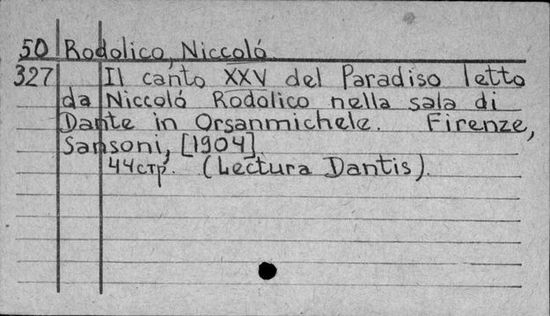 50 Rodolico, Niccoló
327 Il canto XXV del Paradiso letto
da Niccoló Rodolico nella sala di
Dante in Orsanmichele. Firenze,
Sansoni, [1904]
44стр. (Lectura Dantis).